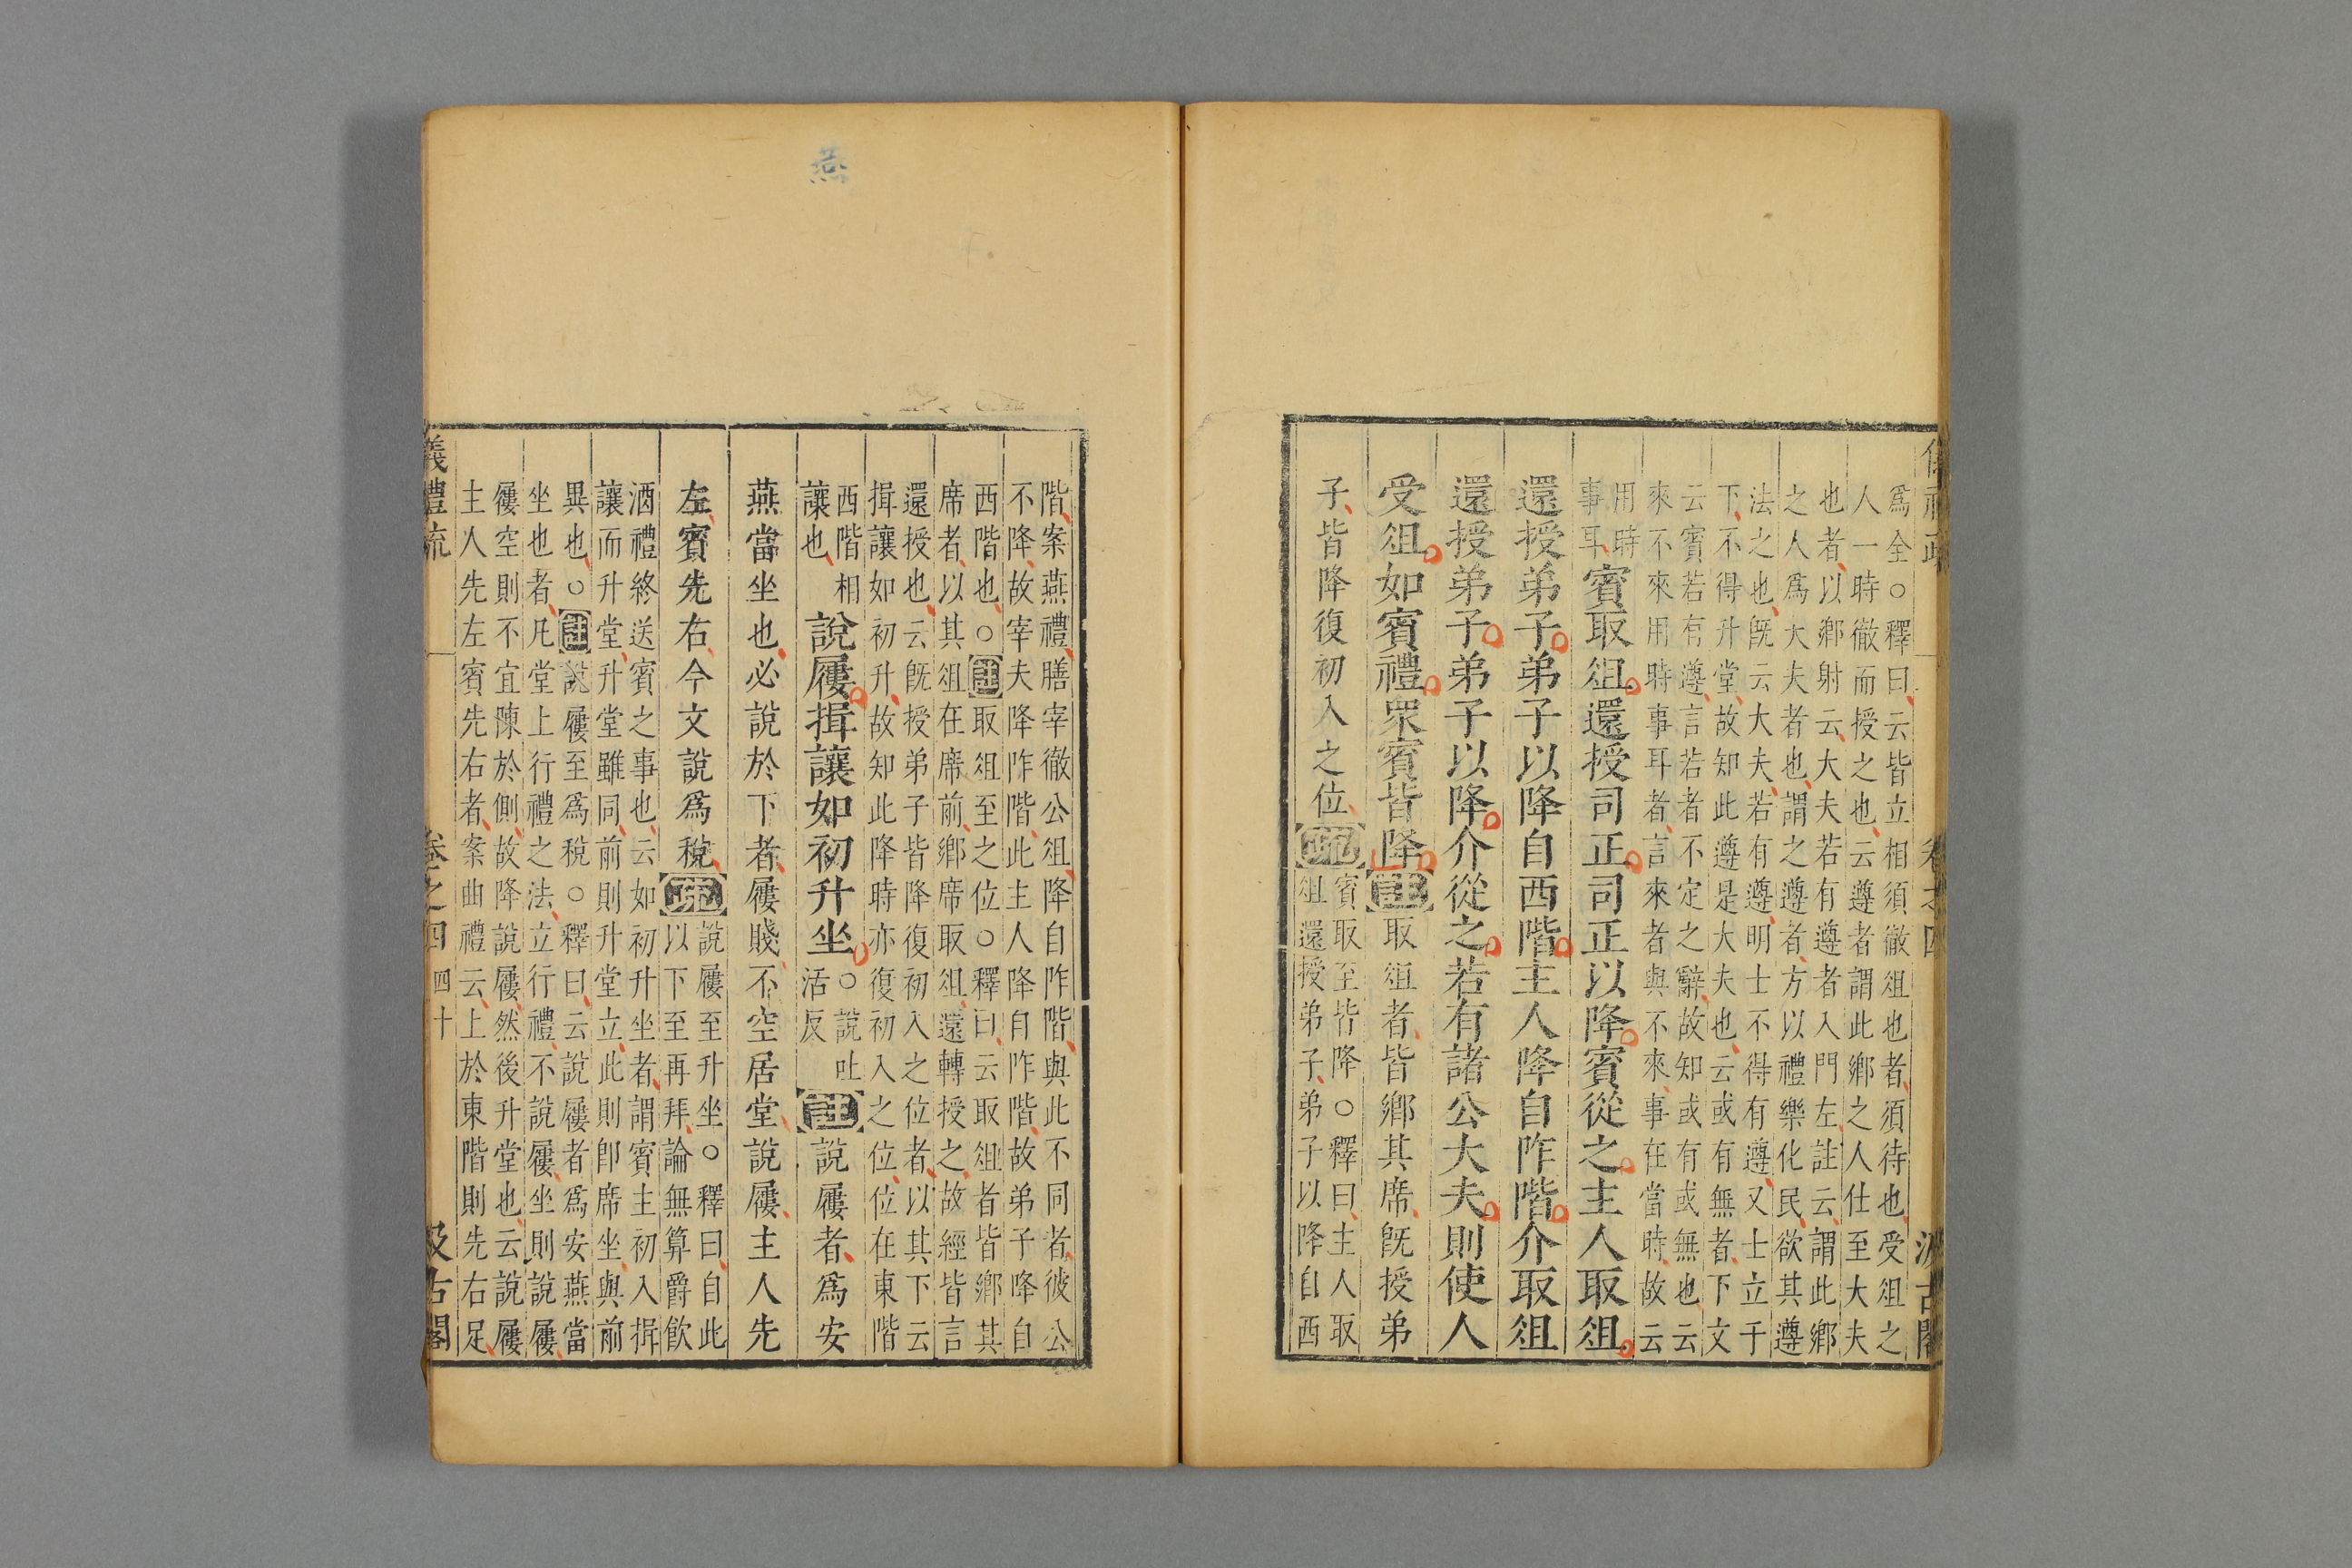 爲全○釋曰云皆立相須徹俎也者須待也受俎之
人一時徹而授之也云遵者謂此鄉之人仕至大夫
也者以鄉射云大夫若有遵者入門左註云謂此鄉
之人爲大夫者也謂之遵者方以禮樂化民欲其遵
法之也既云大夫若有遵明士不得有遵又士立于
下不得升堂故知此遵是大夫也云或有無者下文
云賓若有遵言若者不定之辭故知或有或無也云
來不來用時事耳者言來者與不來事在當時故云
用時
事耳
賓取俎還授司正司正以降賓從之主人取俎
還授弟子弟子以降自西階主人降自阼階介取俎
還授弟子弟子以降介從之若有諸公大夫則使人
受俎如賓禮衆賓皆降
註
取俎者皆鄉其席既授弟
子皆降復初入之位
疏
賓取至皆降○釋曰主人取
俎還授弟子弟子以降自西
卷之四
階案燕禮膳宰徹公俎降自阼階與此不同者彼公
不降故宰夫降阼階此主人降自阼階故弟子降自
西階也○註取俎至之位○釋曰云取俎者皆鄉其
席者以其俎在席前鄉席取俎還轉授之故經皆言
還授也云既授弟子皆降復初入之位者以其下云
揖讓如初升故知此降時亦復初入之位位在東階
西階相
讓也
說屨揖讓如初升坐
○說吐
活反
註
說屨者爲安
燕當坐也必說於下者屨賤不空居堂說屨主人先
左賓先右今文說爲稅
疏
說屨至升坐○釋曰自此
以下至再拜論無算爵飲
酒禮終送賓之事也云如初升坐者謂賓主初入揖
讓而升堂升堂雖同前則升堂立此則卽席坐與前
異也○註說屨至爲稅○釋曰云說屨者爲安燕當
坐也者凡堂上行禮之法立行禮不說屨坐則說屨
屨空則不宜陳於側故降說屨然後升堂也云說屨
主人先左賓先右者案曲禮云上於東階則先右足
儀禮疏
卷之四
四十
汲古閣
燕